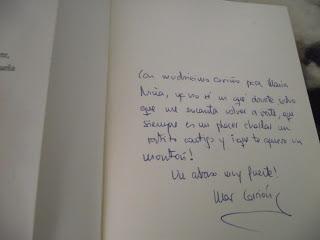 Con muchísimo cariño para María
Niña, ya no sé un que decirte salvo
que me encanta volver a verte, que
siempre es un placer charlar un
ratito contigo y ¡que te quiero un
montón!
Un abrazo muy fuerte!
Mar Carrión